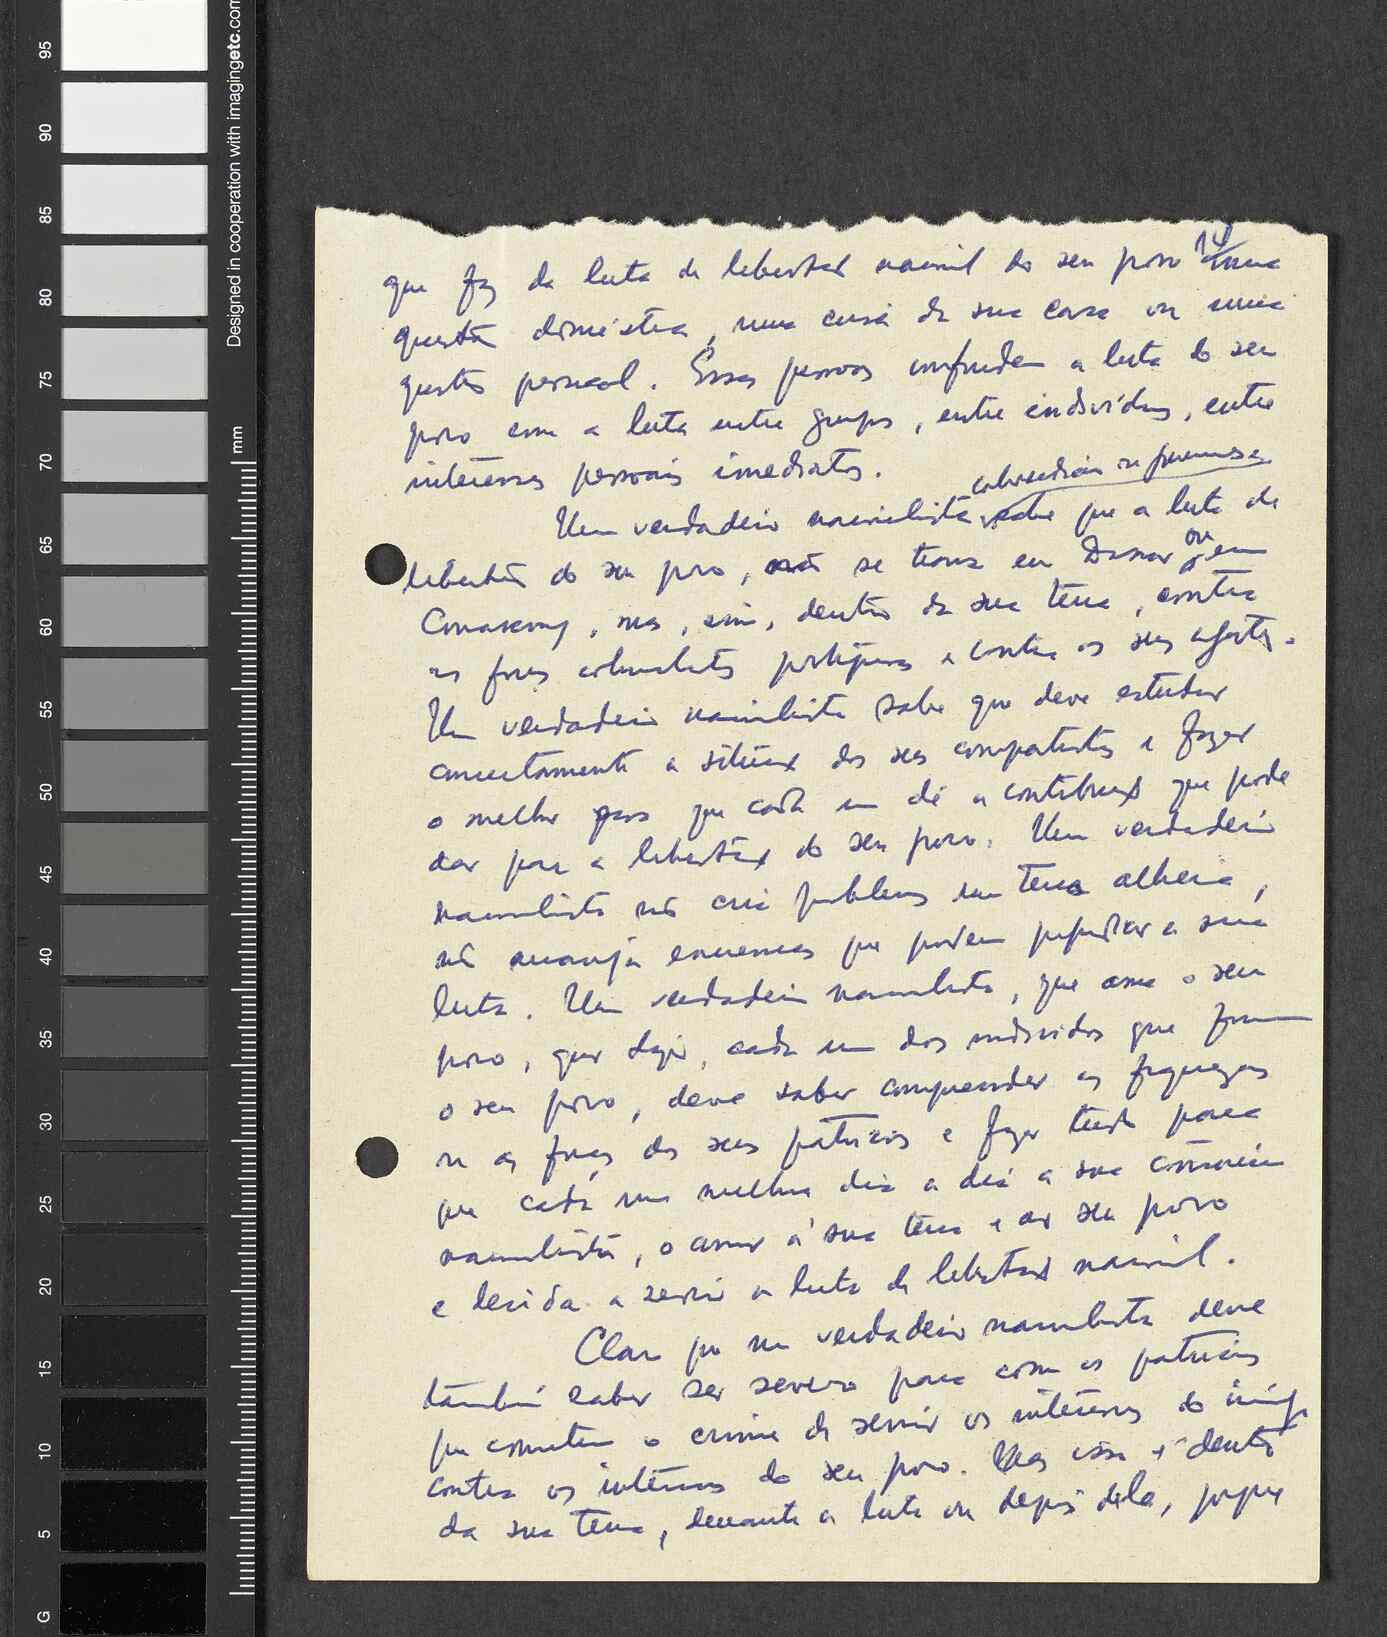 95
90
85
80
75
70
65
60
55
50
45
40
35
30
25
20
15
10
5
G
Designed in cooperation with imagingetc.com
mm
14
que faz da luta de libertação nacional do seu povo uma
questão doméstica, uma coisa da sua casa ou uma
questão pessoal. Essas pessoas confundem a luta do seu
povo com a luta entre grupos, entre indivíduos, entre
interesses pessoais imediatos.
Um verdadeiro nacionalista sabe que a luta de
libertação do seu povo, não se trava em Dakar ou em
Conakry, mas, sim, dentro da sua terra, contra
as forças colonialistas portuguesas e contra os seus agentes.
Um verdadeiro nacionalista sabe que deve estudar
concretamente a situação dos seus compatriotas e fazer
o melhor para que cada um dê a contribuição que pode
dar para a libertação do seu povo. Um verdadeiro
nacionalista não cria problemas em terra alheia,
não arranja que podem prejudicar a sua
luta. Um verdadeiro nacionalista, que ama o seu
povo, quer dizer, cada um dos indivíduos que formam
o seu povo, deve saber compreender as fraquezas
ou as forças dos seus patrícios e fazer tudo para
que cada um melhore dia a dia a sua consciência
nacionalista, o amor à sua terra e ao seu povo
e decida a servir a luta de libertação nacional.
Claro que um verdadeiro nacionalista deve
também saber ser severo para com os patrícios
que cometem o crime de servir os interesses do inimigo
contra os interesses do seu povo. Mas isso é dentro
da sua terra, durante a luta ou depois dela, porque